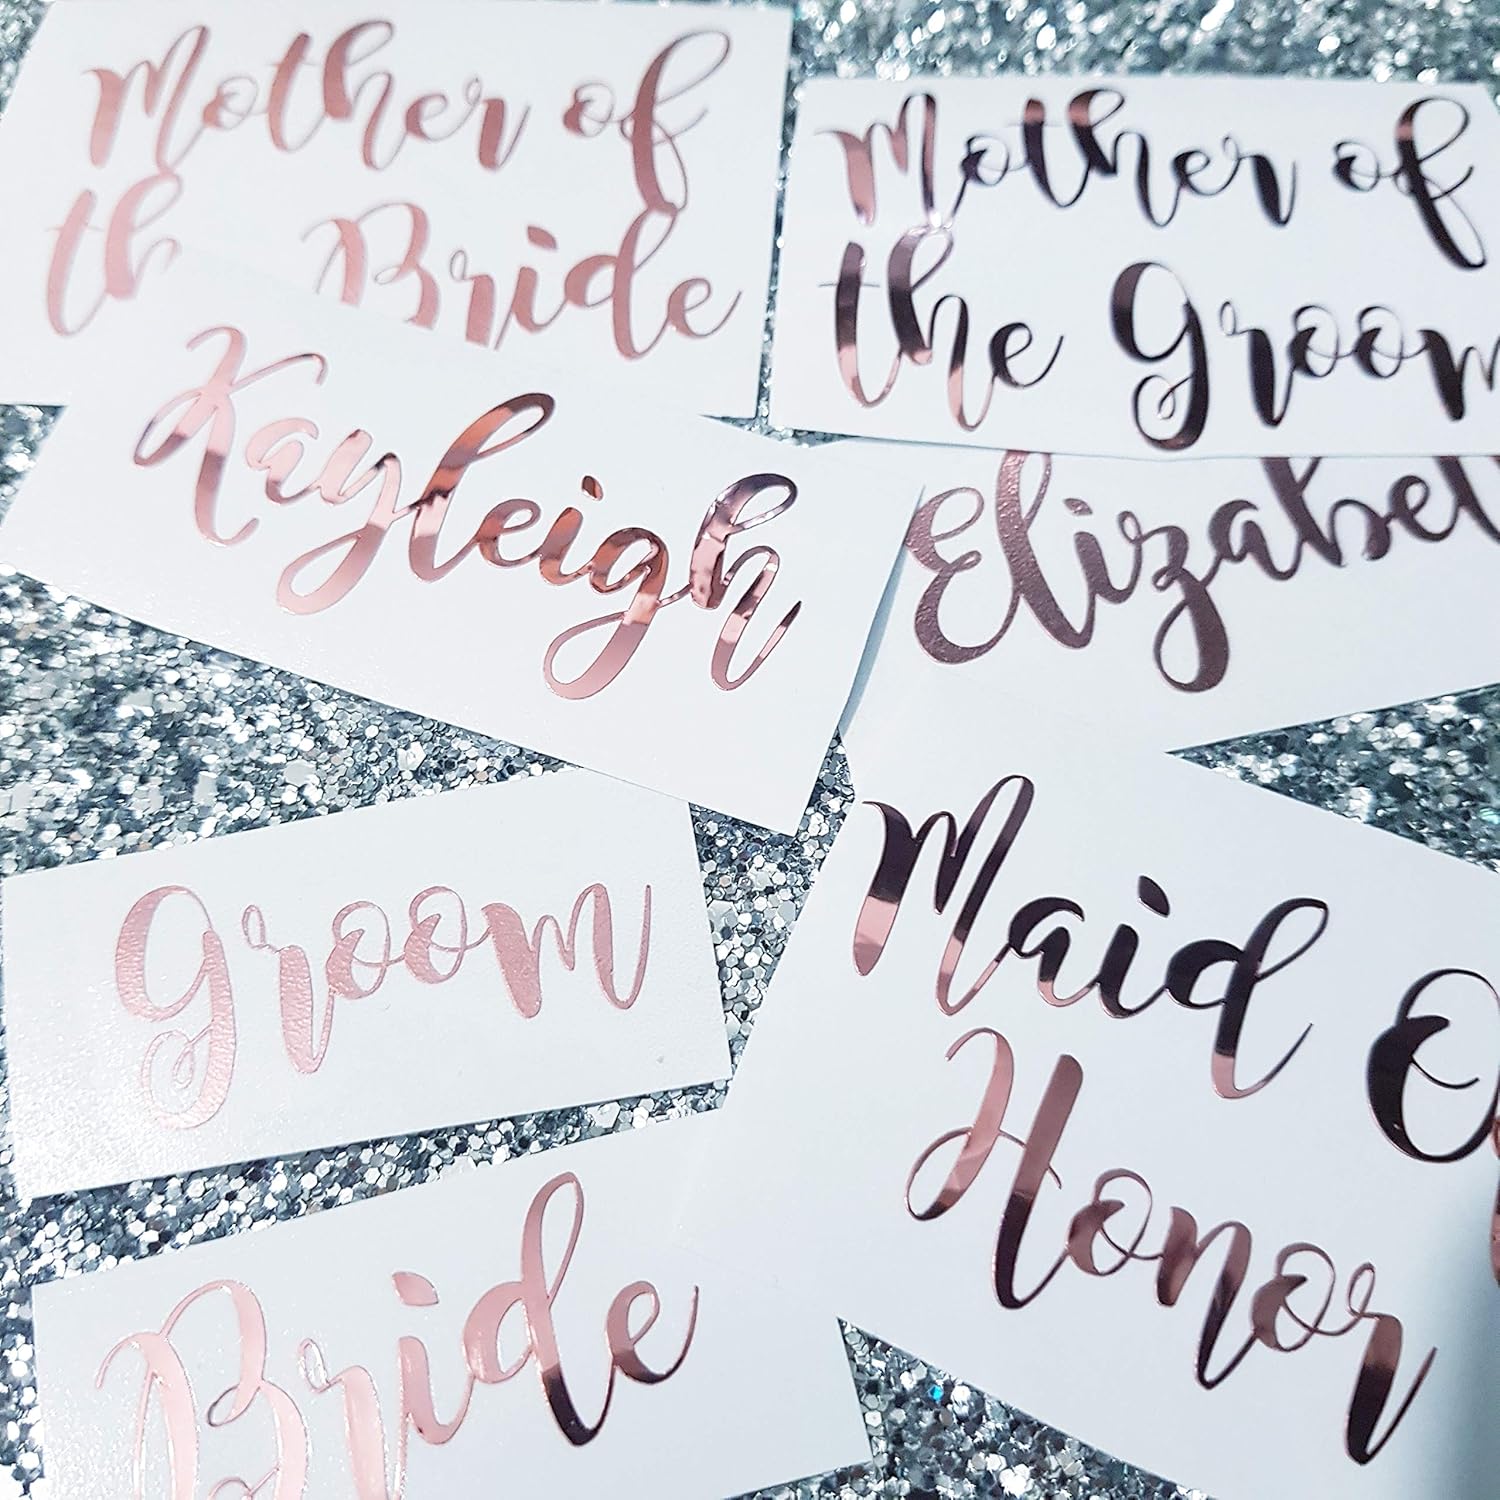 Mother of
th Bride
Mother of
the Groom
Kayleigh
Elizabet
Groom
Maid O
Honor
Bride